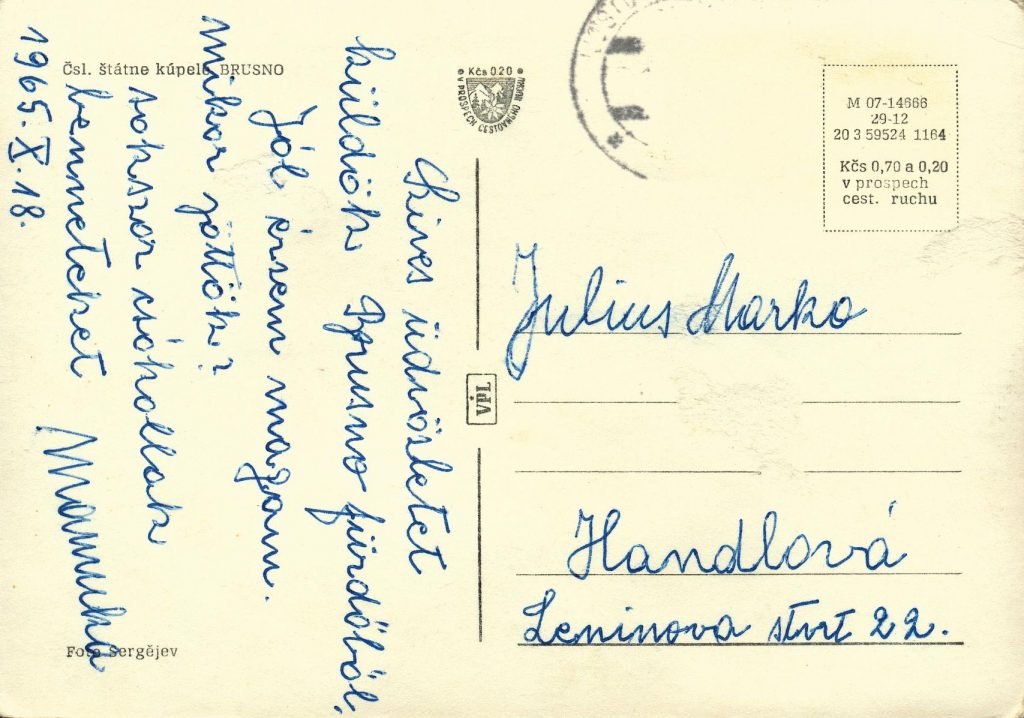 Čsl. štátne kúpele BRUSNO
Kčs 0,20
V PROSPECH CESTOVNÉHO RUCHU
M 07-14666
29-12
20 3 59524 1164
Kčs 0,70 a 0,20
v prospech
cest. ruchu
Szíves üdvözletet
küldök Brusno fürdőből.
Jól érzem magam.
mikor jöttök?
sokszor csókollak
benneteket Mamuka
1965.X.18.
VpL
Julius Marko
Handlová
Leninova štvrt 22.
Foto Sergějev